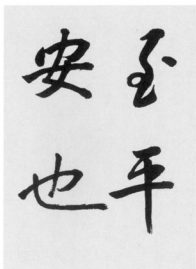 至平
安也